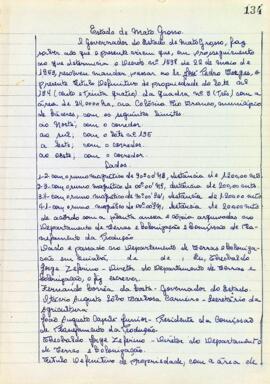 134
Estado de Mato Grosso
O Governador do Estado de Mato Grosso, faz
saber aos que o presente virem que, em prosseguimento
ao que determina o Decreto nº 1598 de 22 de maio
de 1953, resolveu mandar passar ao Sr. José Pedro Borges, o
presente Título Definitivo de propriedade do lote nº
134 (cento e trinta e quatro) da Quadra nº 3 (três) com a
área de 24.000 ha, na Colônia Rio Branco, município
de Cáceres, com os seguintes limites:
ao Norte; com o corredor.
ao Sul; com o lote nº 135
a Leste; com o corredor.
ao Oeste; com o corredor.
Lados
1-2 com o rumo magnético de 90º00'
2-3 com o rumo magnético de 00º00'
3-4 com o rumo magnético de 90º00'
4-1 com o rumo magnético de 00º00'
de acordo com a planta anexa e cópia arquivadas no
Departamento de Terras e Colonização e Comissão de Pla-
nejamento da Produção.
Dado e passado no Departamento de Terras e Coloniza-
ção em Cuiabá, de de Eu, Thesbaldo
Jorge Zeferino - Diretor do Departamento de Terras e
Colonização, o fiz escrever.
Fernando Corrêa da Costa - Governador do Estado.
Augusto Lobo Carneiro - Secretário da
Agricultura
João Augusto Capilé Junior - Presidente da Comissão
de Planejamento da Produção.
Thesbaldo Jorge Zeferino - Diretor do Departamento
de Terras e Colonização.
Título Definitivo de Propriedade, com a área de